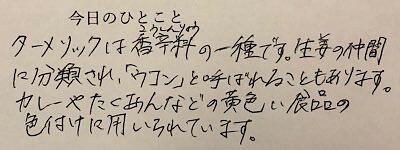 今日のひとこと
こうしんりょう
ターメリックは香辛料の一種です。生姜の仲間
に分類され、「ウコン」と呼ばれることもあります。
カレーやたくあんなどの黄色い食品の
色付けに用いられています。